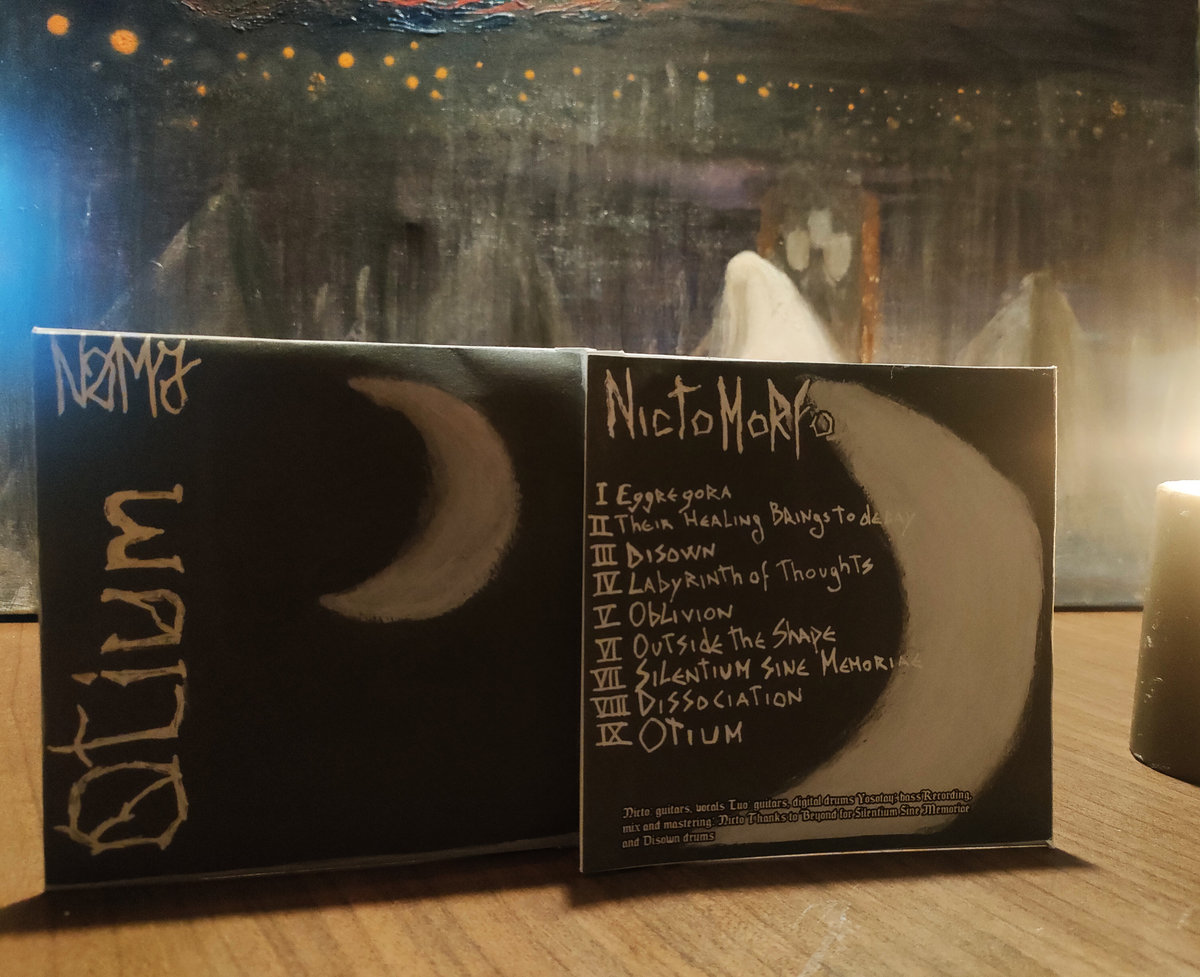 NØMJ
OTiUM
NICTOMORFO
I EGGREGORA
II THEIR HEALING BRINGS TO DECAY
III DISOWN
IV LABYRINTH OF THOUGHTS
V OBLIVION
VI OUTSIDE THE SHAPE
VII SILENTIUM SINE MEMORIAE
VIII DISSOCIATION
IX OTIUM
Nicto: guitars, vocals Luo: guitars, digital drums Yosotoy: bass Recording,
mix and mastering: Nicto Thanks to Beyond for Silentium Sine Memoriae
and Disown drums